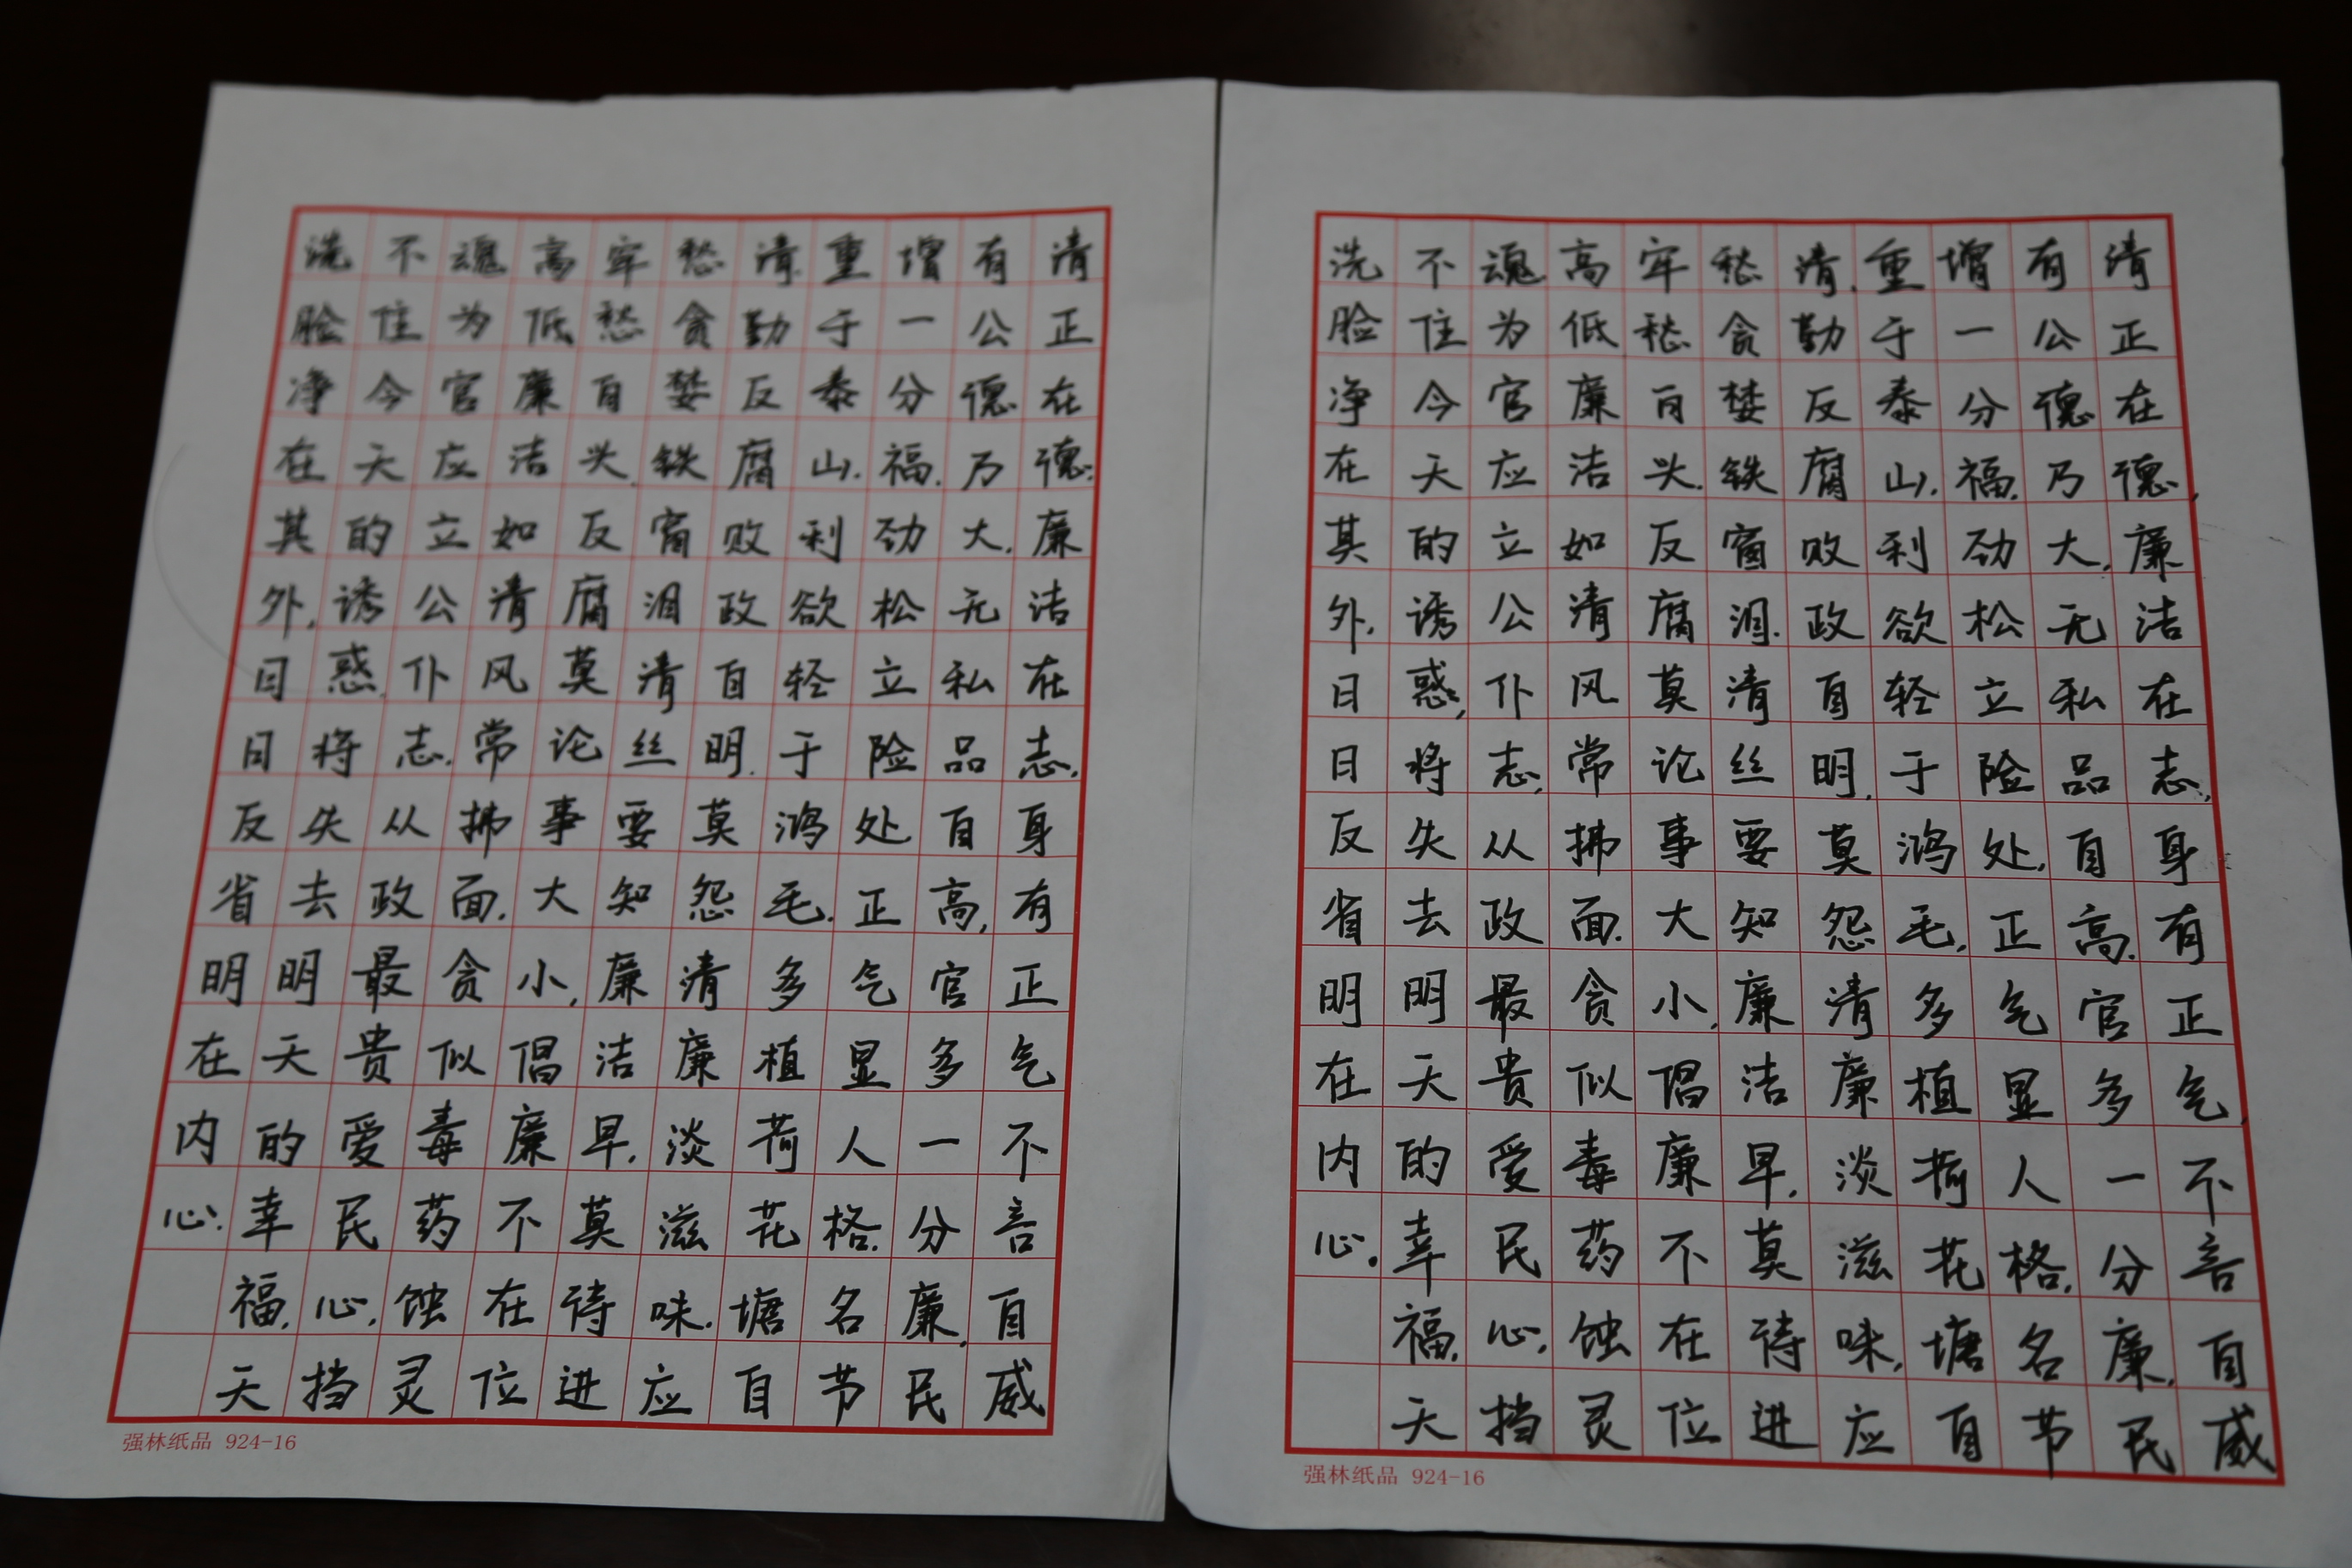 清正在德,廉洁在志,身有正气不言自威
有公德乃大,无私品自高,官多一分廉,民
增一分福.劲松立险处正气显人格.名节
重于泰山.利欲轻于鸿毛.多植荷花塘自
清.勤反腐败政自明.莫怨清廉淡滋味.应
愁贪婪铁窗泪清丝要知廉洁早.莫待进
牢愁白头.反腐莫论事大小,倡廉不在位
高低廉洁如清风常拂面.贪似毒药蚀灵
魂为官应立公仆志.从政最贵爱民心,挡
不住今天的诱惑,将失去明天的幸福,天
洗脸净在其外,日日反省明在内心.
强林纸品 924-16
清正在德,廉洁在志,身有正气,不言自威
有公德乃大,无私品自高.官多一分廉,民
增一分福.劲松立险处,正气显人格.名节
重于泰山.利欲轻于鸿毛,多植荷花塘自
清.勤反腐败政自明.莫怨清廉淡滋味,应
愁贪婪铁窗泪.清丝要知廉洁早,莫待进
牢愁白头.反腐莫论事大小,倡廉不在位
高低廉洁如清风常拂面.贪似毒药蚀灵
魂为官应立公仆志,从政最贵爱民心,挡
不住今天的诱惑,将失去明天的幸福,天
洗脸净在其外,日日反省明在内心.
强林纸品 924-16